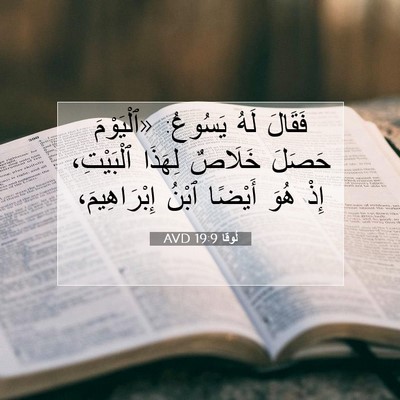 فَقَالَ لَهُ يَسُوعُ: «ٱلْيَوْمَ
حَصَلَ خَلَاصٌ لِهَذَا ٱلْبَيْتِ،
إِذْ هُوَ أَيْضًا ٱبْنُ إِبْرَاهِيمَ،
لُوقا 19:9 AVD